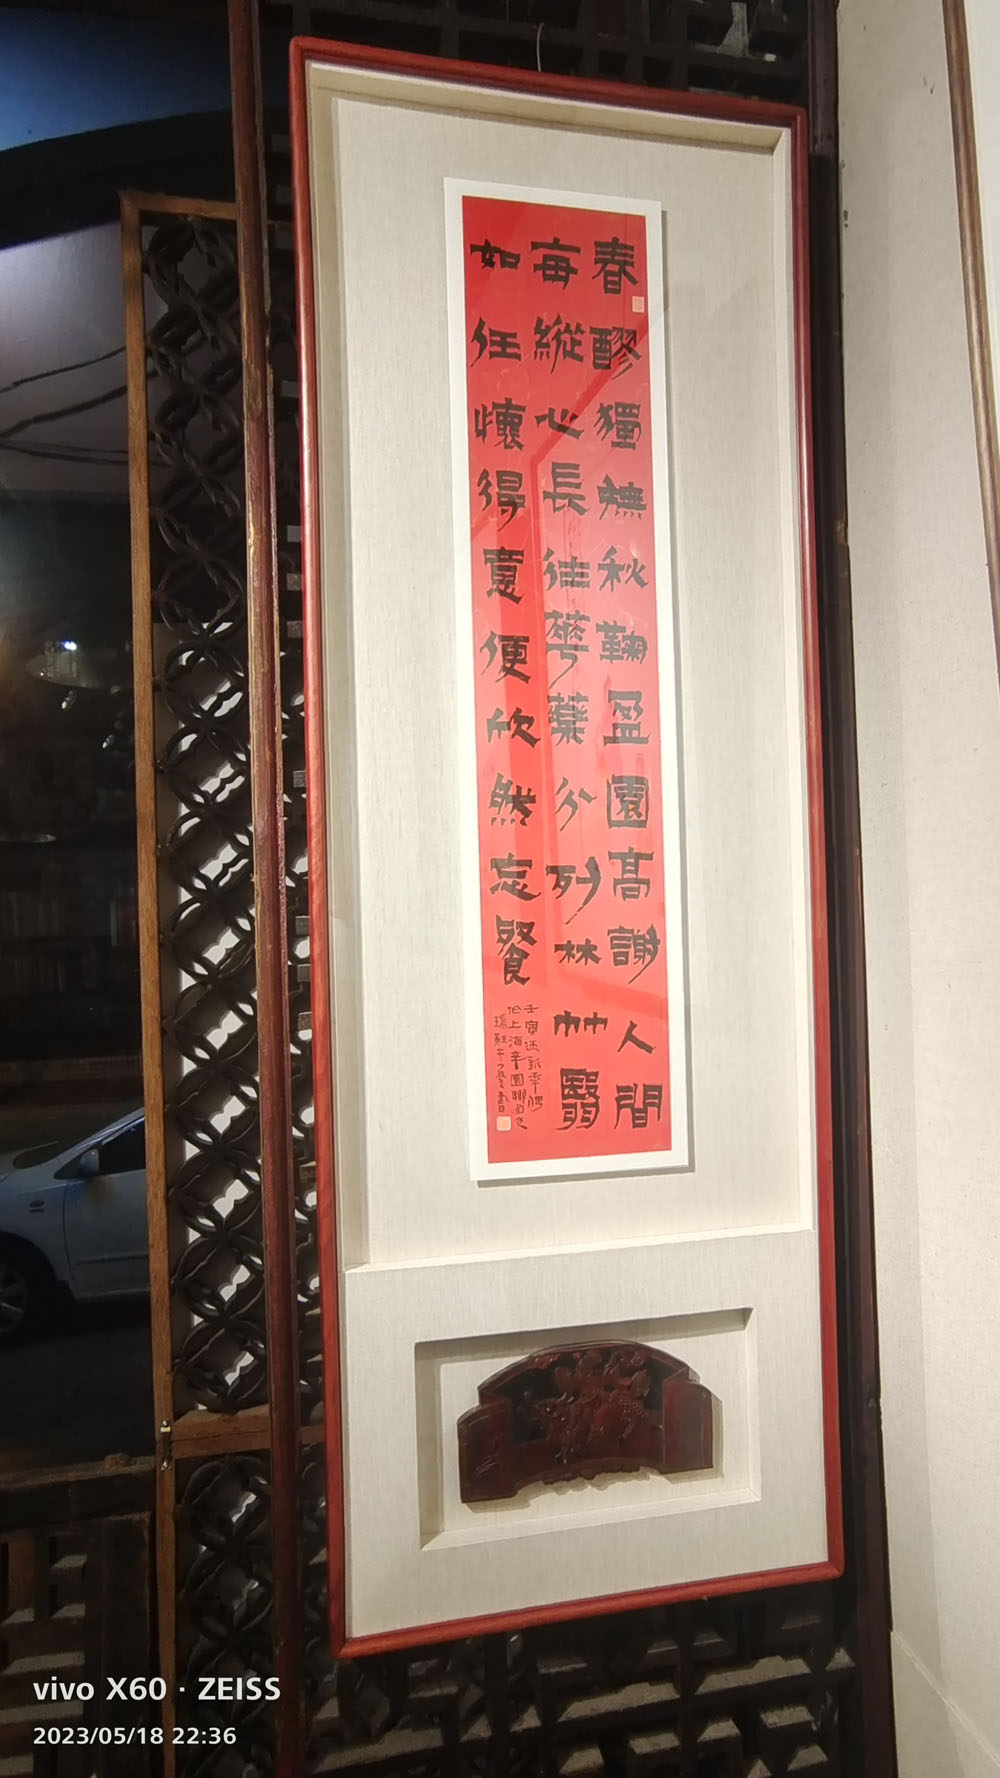 春醪獨撫秋鞠盈園高謝人間
每縱心長往華藥分列林竹翳
如任懷得意便欣然忘餐
壬寅迎新季
於上海辛園
vivo X60 · ZEISS
2023/05/18 22:36